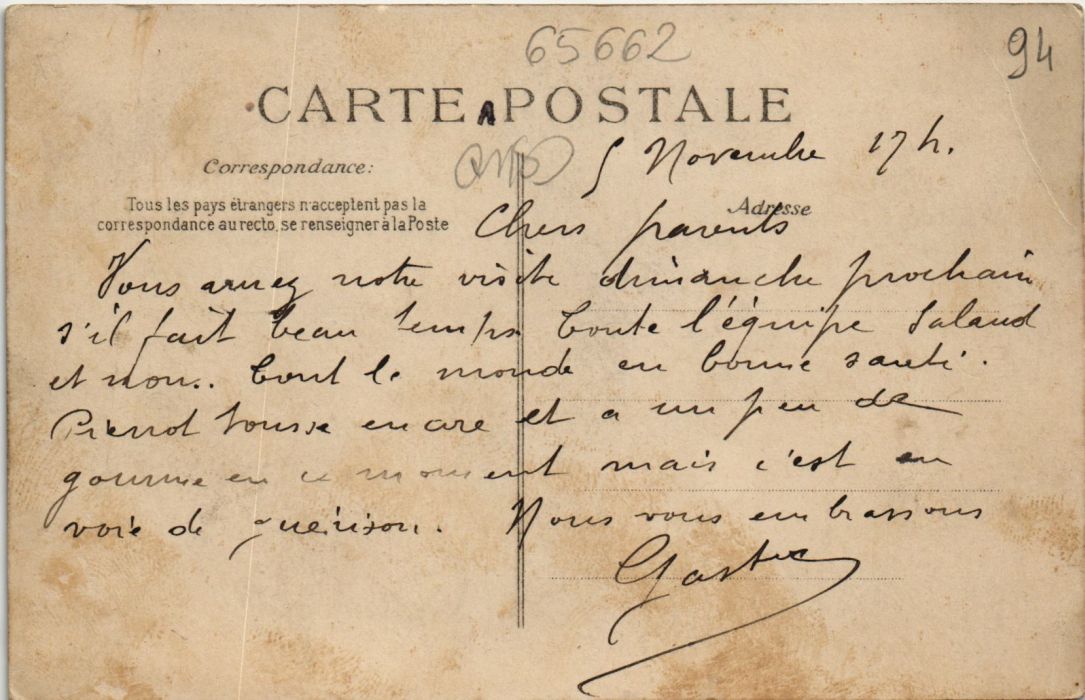 65662
94
CARTE POSTALE
5 Novembre 17h.
Correspondance:
Tous les pays étrangers n'acceptent pas la
correspondance au recto, se renseigner à la Poste
Adresse
Chers parents
Vous aurez notre visite dimanche prochain
s'il fait beau temps toute l'équipe Salaud
et nous. Tout le monde en bonne santé.
Pierrot tousse encore et a un peu de
gourme en ce moment mais c'est en
voie de guérison. Nous vous embrassons